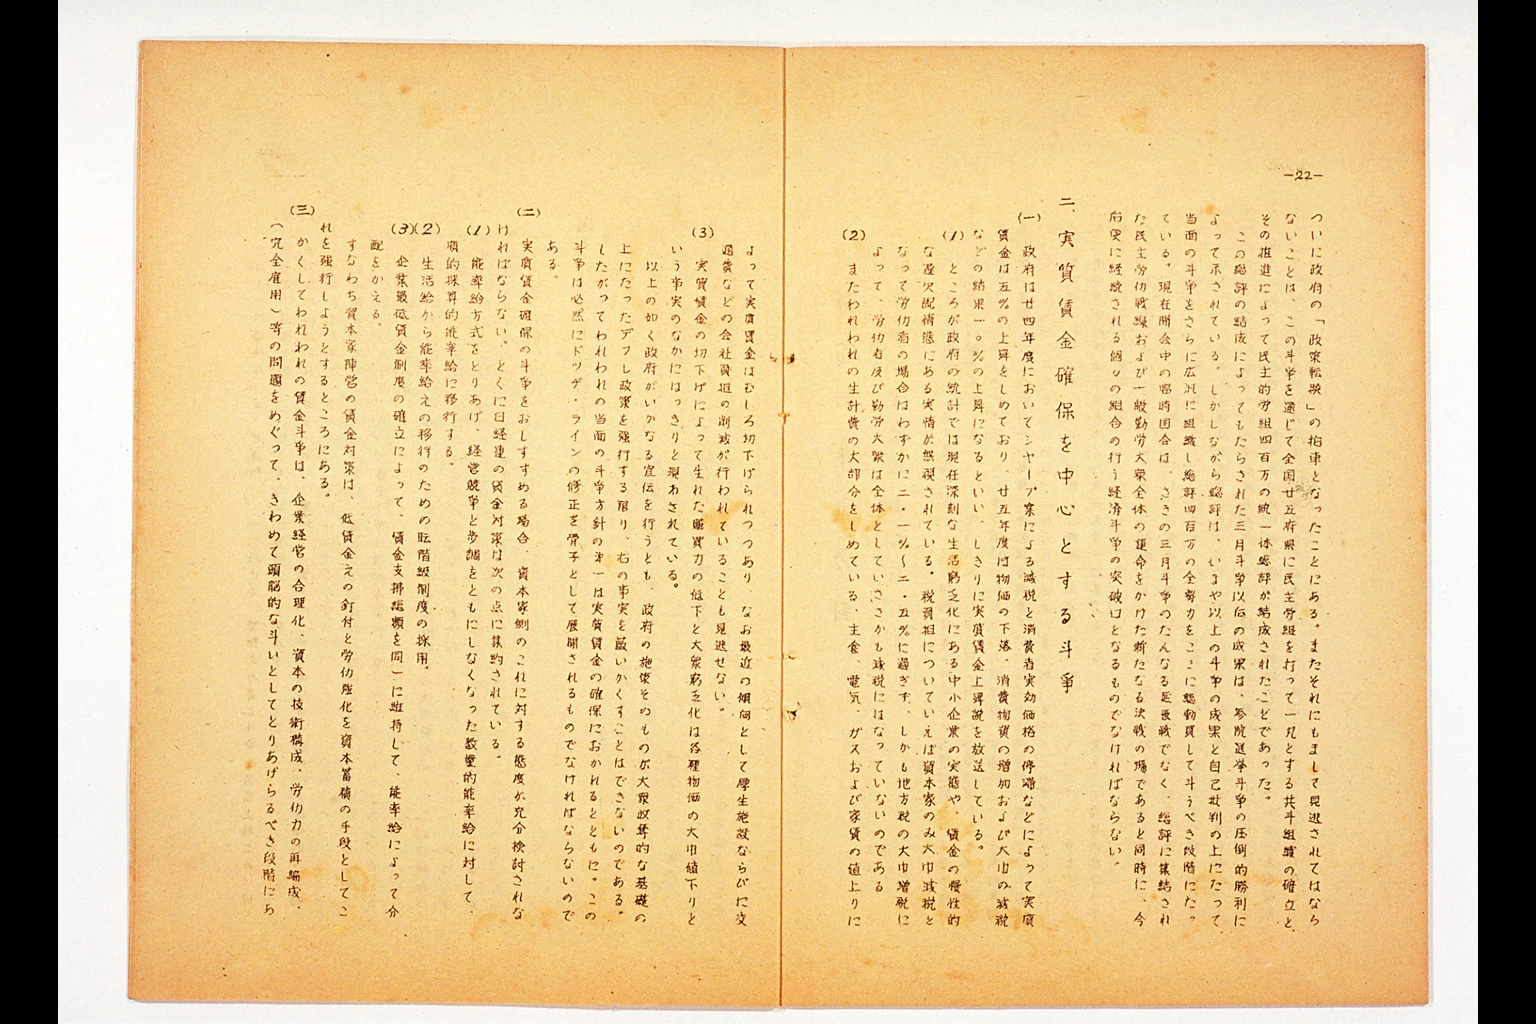 —22—
ついに政府の「政策転換」の拍車となったことにある。またそれにもまして見逃されてはなら
ないことは、この斗争を通じて全国廿五府県に民主労組を打って一丸とする共斗組織の確立と、
その推進によって民主的労組四百万の統一体総評が結成されたことであった。
この総評の結成によってもたらされた三月斗争以后の成果は、参院選挙斗争の圧倒的勝利に
よって示されている。しかしながら総評は、いまや以上の斗争の成果と自己批判の上にたって、
当面の斗争をさらに広汎に組織し総評四百万の全勢力をここに総動員して斗うべき段階にた
ている。現在開会中の臨時国会は、さきの三月斗争のたんなる延長戦でなく、総評に集結され
た民主労仂戦線および一般勤労大衆全体の運命をかけた新たなる決戦の場であると同時に、今
后更に継続される個々の組合の行う経済斗争の突破口となるものでなければならない。
二、実質賃金確保を中心とする斗争
(一) 政府は廿四年度においてシヤープ案による減税と消費者実効価格の停滞などによって実質
賃金は五%の上昇をしめており、廿五年度は物価の下落、消費物資の増加および大巾の減税
などの結果一〇%の上昇になるといい、しきりに実質賃金上昇説を放送している。
(1) ところが政府の統計では現在深刻な生活窮乏化にある中小企業の実態や、賃金の慢性的
な遅欠配情態にある実情が無視されている。税負担についていえば資本家のみ大巾減税と
なって労仂者の場合はわずかに二・一%～二・五%に過ぎず、しかも地方税の大巾増税に
よって、労仂者及び勤労大衆は全体としていささかも減税にはなっていないのである
(2) またわれわれの生計費の大部分をしめている、主食、電気、ガスおよび家賃の値上りに
よって実質賃金はむしろ切下げられつつあり、なお最近の傾向として厚生施設ならびに交
通費などの会社負担の削減が行われていることも見逃せない。
(3) 実質賃金の切下げによって生れた購買力の低下と大衆窮乏化は各種物価の大巾値下りと
いう事実のなかにはっきりと現わされている。
以上の如く政府がいかなる宣伝を行うとも、政府の施策そのものが大衆収奪的な基礎の
上にたったデフレ政策を強行する限り、右の事実を蔽いかくすことはできないのである。
したがってわれわれの当面の斗争方針の第一は実質賃金の確保におかれるとともに、この
斗争は必然にドッヂ・ラインの修正を骨子として展開されるものでなければならないので
ある。
(二) 実質賃金確保の斗争をおしすすめる場合、資本家側のこれに対する態度が充分検討されな
ければならない、とくに日経連の賃金対策は次の点に集約されている。
(1) 能率給方式をとりあげ、経営競争と歩調をともにしなくなった数量的能率給に対して、
質的採算的能率給に移行する。
(2) 生活給から能率給えの移行のための職階級制度の採用。
(3) 企業最低賃金制度の確立によって、賃金支拂総額を同一に維持して、能率給によって分
配をかえる。
すなわち資本家陣営の賃金対策は、低賃金えの釘付と労仂強化を資本蓄積の手段としてこ
れを強行しようとするところにある。
(三) かくしてわれわれの賃金斗争は、企業経営の合理化、資本の技術構成、労仂力の再編成、
(完全雇用)等の問題をめぐって、きわめて頭脳的な斗いとしてとりあげらるべき段階にあ